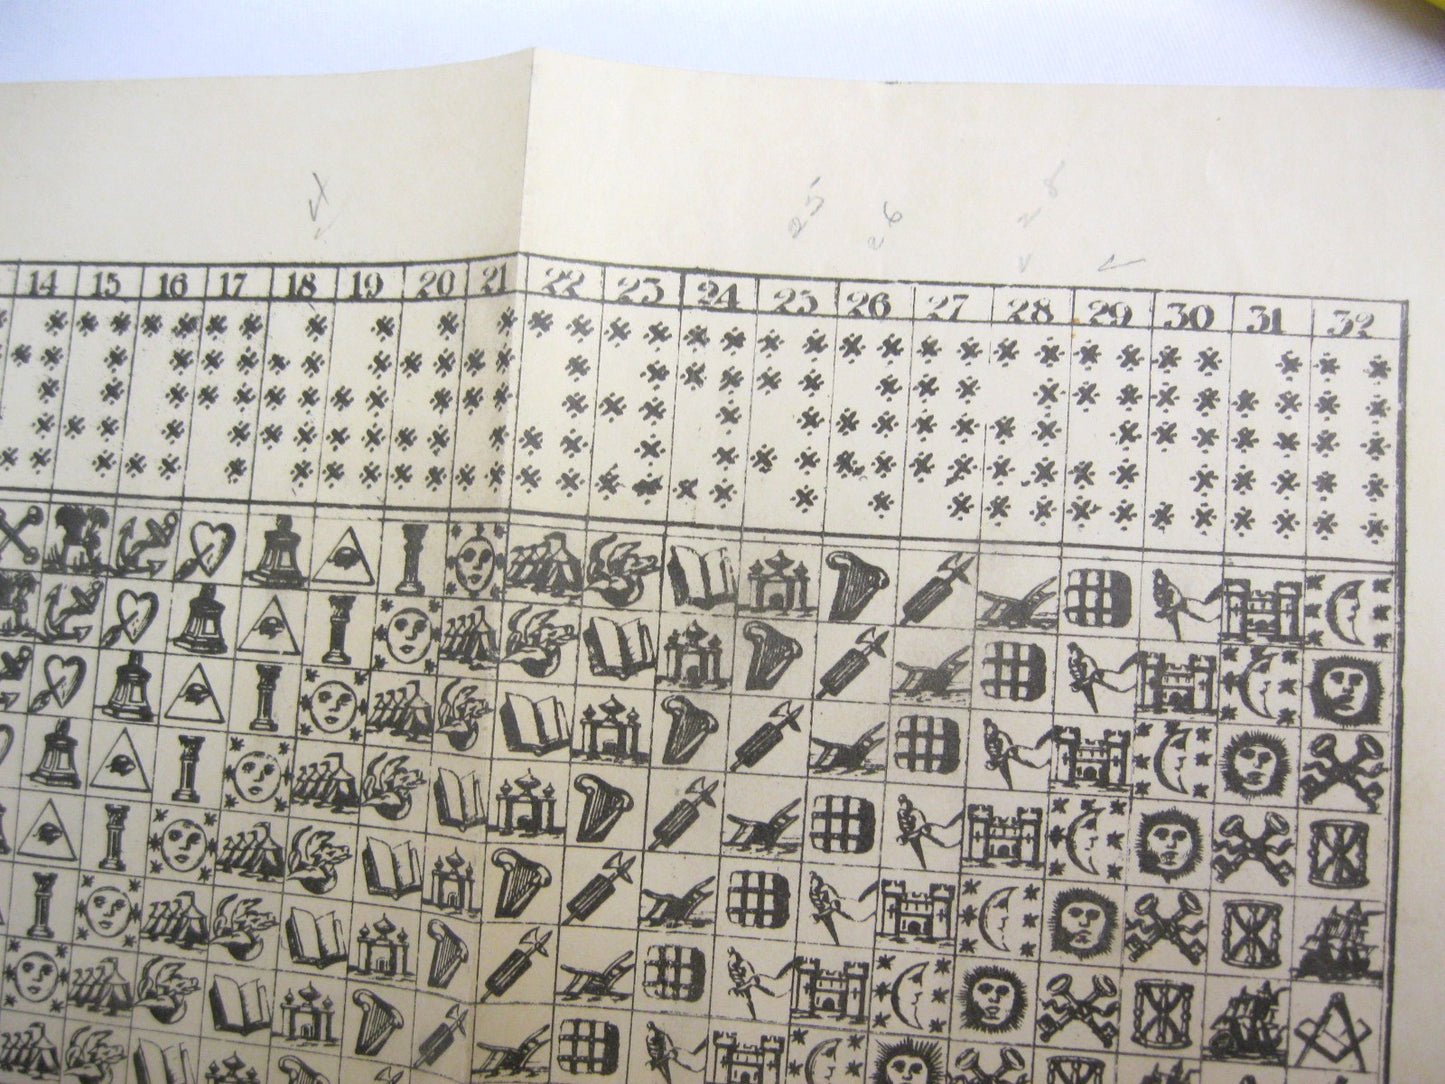 25
26
28
14 15 16 17 18 19 20 21 22 23 24 25 26 27 28 29 30 31 32